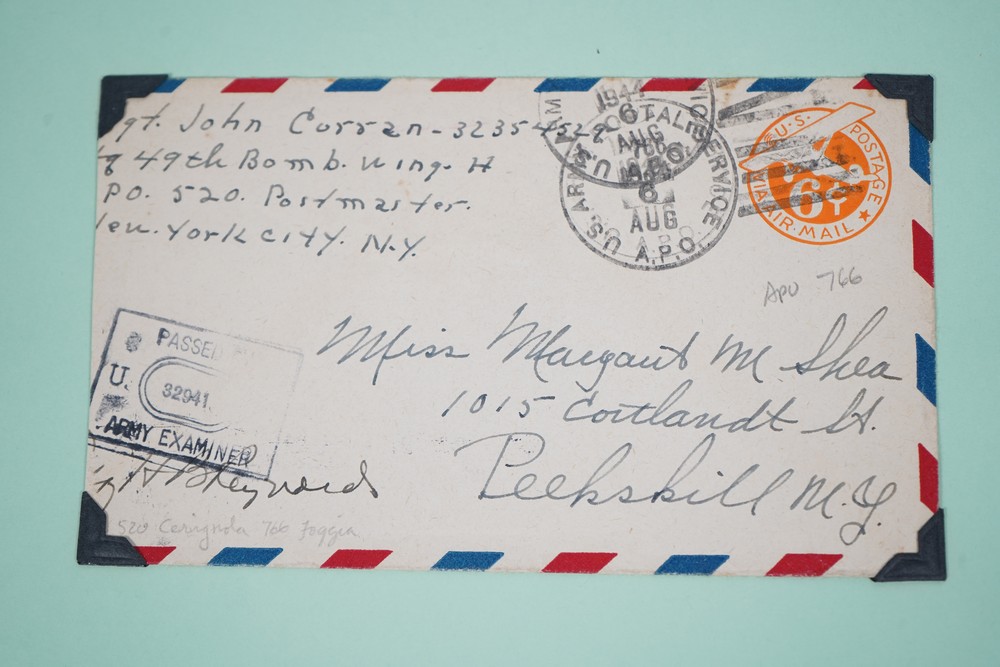 gt. John Corran - 32354529
q 49th Bomb. Wing. H
PO. 520. Postmaster.
ew. York City. N.Y.
1944
6
AUG
U.S. ARMY POSTAL SERVICE
6
AUG
A.P.O.
U.S. POSTAGE
6¢
VIA AIR MAIL
APO 766
PASSED
U.
32941
ARMY EXAMINER
Miss Margaret M Shea
1015 Cortlandt St.
Peekskill N.Y.
520 Cerignola 766 Foggia